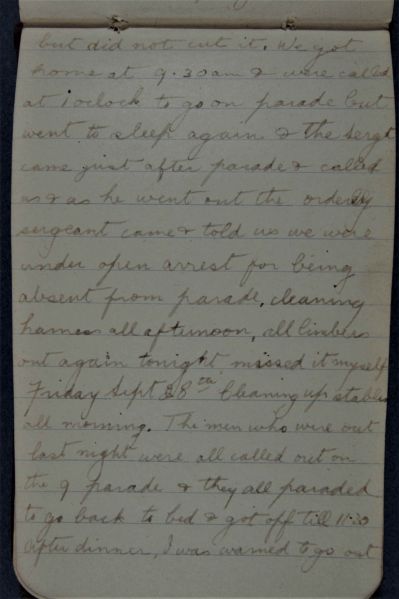 but did not cut it. We got
home at 9.30am & were called
at 1 oclock to go on parade but
went to sleep again & the sergt
came just after parade & called
us & as he went out the orderly
sergeant came & told us we were
under open arrest for being
absent from parade, cleaning
harness all afternoon, all limbers
out again tonight missed it myself
Friday Sept 28th Cleaning up stables
all morning. The men who were out
last night were all called out on
the 9 parade & they all paraded
to go back to bed & got off till 11.30
After dinner, I was warned to go out